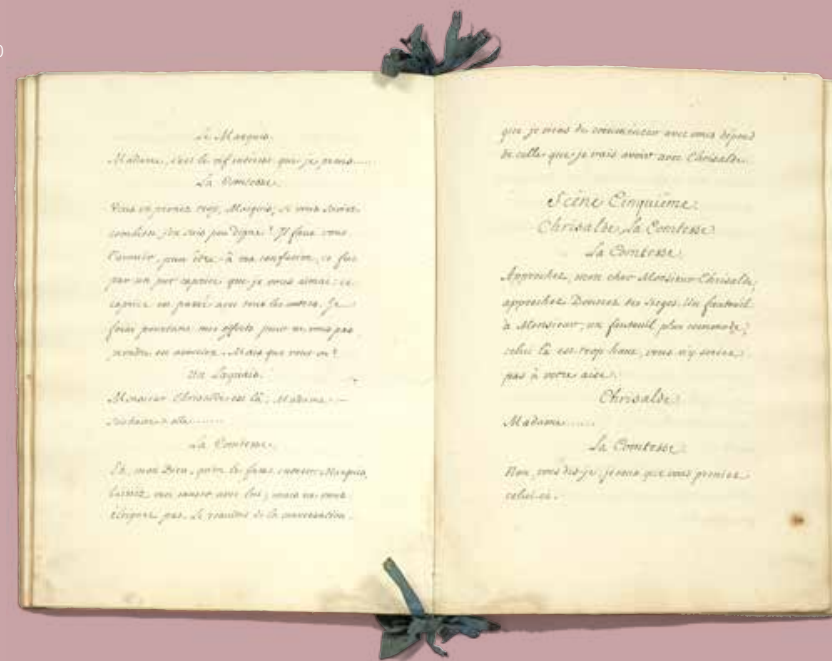 Le Marquis.
Madame, c'est le vif interest que je prens......
La Comtesse.
Vous en prenez trop, Marquis; si vous sçaviez
combien j'en suis peu digne! Il faut vous
l'avouer, peut être à ma confusion, ce fut
par un pur caprice que je vous aimai: ce
caprice est passé avec tous les autres. Je
ferai pourtant mes efforts pour ne vous pas
Mais que veut on?
Un Laquais.
Monsieur Chrisalde est là, Madame
La Comtesse.
Eh, mon Dieu, qu'on le fasse entrer. Marquis,
laissez moi causer avec lui; mais ne vous
éloignez pas. Le résultat de la conversation
que je viens de commencer avec vous dépend
de celle que je vais avoir avec Chrisalde.
Scène Cinquième.
Chrisalde, La Comtesse.
La Comtesse.
Approchez, mon cher Monsieur Chrisalde,
approchez. Donnez des sieges. Un fauteuil
à Monsieur; un fauteuil plus commode;
celui là est trop haut, vous n'y seriez
pas à votre aise.
Chrisalde.
Madame......
La Comtesse.
Non, vous dis-je, je veux que vous preniez
celui-ci.